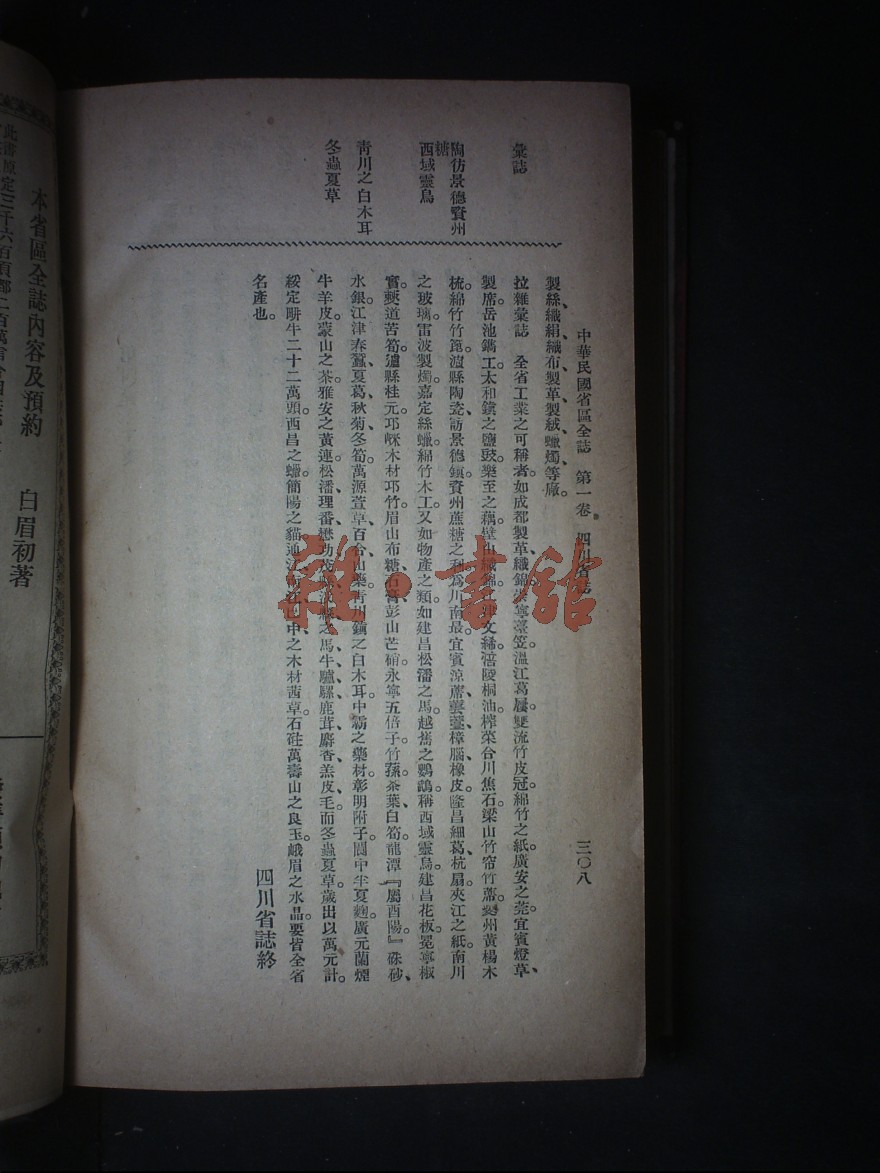 中華民國省區全誌　第一卷　四川省誌
三〇八
彙誌
陶仿景德資州
糖
西域靈鳥
青川之白木耳
冬蟲夏草
製絲、織絹、織布、製革、製絨、蠟燭等廠。
拉雜彙誌　全省工業之可稱者、如成都製革織錦、崇寧臺笠、溫江葛屨、雙流竹皮冠、綿竹之紙、廣安之莞、宜賓燈草、
製席、岳池鐫工、太和鎮之鹽鼓、樂至之藕、壁山織錦、文綈、涪陵桐油、榨菜、合川焦石、梁山竹帘竹蓆、夔州黃楊木
梳、綿竹竹篦、溆縣陶瓷、訪景德鎮、資州蔗糖之利、爲川南最、宜賓涼蓆、樟腦、橡皮、隆昌細葛、杭扇、夾江之紙、南川
之玻璃、雷波製燭、嘉定絲蠟、綿竹木工。又如物產之類、如建昌松潘之馬、越嶲之鸚鵡、稱西域靈鳥。建昌花板、冕寧椒
實、僰道苦筍、瀘縣桂元、邛崍木材邛竹、眉山布糖石膏、彭山芒硝、永寧五倍子、竹蓀、茶葉、白筍、龍潭『屬酉陽』硃砂、
水銀、江津春蠶、夏葛、秋菊、冬筍、萬源萱草、百合、山藥、青川鎮之白木耳、中壩之藥材、彰明附子、閬中半夏麯、廣元蘭煙
牛羊皮、蒙山之茶、雅安之黃連、松潘、理番、懋功、茂縣、汶縣之馬、牛、驢、騾、鹿茸、麝香、羔皮、毛、而冬蟲夏草、歲出以萬元計。
綏定畊牛二十二萬頭、西昌之蠟、簡陽之貓、通江南江巴中之木材茜草、石砫萬壽山之良玉、峨眉之水晶、要皆全省
名產也。
四川省誌終
本省區全誌內容及預約
白眉初著
雜·書館